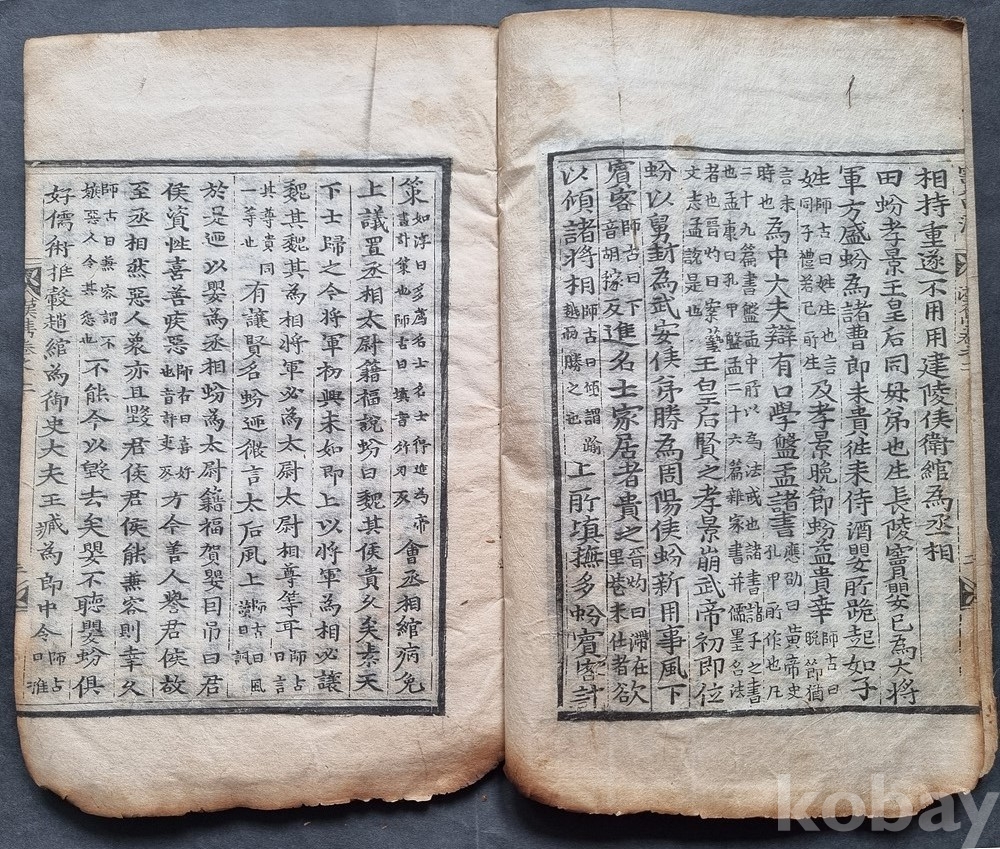 相持重遂不用用建陵侯衛綰為丞相
田蚡孝景王皇后同母弟也生長陵竇嬰已為大將
軍方盛蚡為諸曹郎未貴徃来侍酒嬰所跪起如子
姓師古曰姓生也言同子禮若己所生也及孝景晚節蚡益貴幸師古曰晚節猶
言末時也為中大夫辯有口學盤盂諸書應劭曰黄帝史孔甲所作也凡
二十九篇書盤盂中所以為法戒也諸書諸子之書也孟康曰孔甲盤盂二十六篇雜家書并儒墨名法
者也晋灼曰案藝文志孟説是也王皇后賢之孝景崩武帝初即位
蚡以舅封為武安侯弟勝為周陽侯蚡新用事風下
賔客師古曰下音胡稼反進名士家居者貴之晋灼曰滯在里巷未仕者欲
以傾諸將相師古曰傾謂踰越而勝之也上所塡撫多蚡賔客計
策如淳曰多為名士名士得進為帝畫計策也師古曰塡音竹刃反會丞相綰病免
上議置丞相太尉藉福説蚡曰魏其侯貴久矣素天
下士歸之今將軍初興未如即上以將軍為相必讓
魏其魏其為相將軍必為太尉太尉相尊等耳師古曰言其尊貴同
一等也有讓賢名蚡廼微言太后風上師古曰風讀曰諷
於是廼以嬰為丞相蚡為太尉藉福賀嬰因吊曰君
侯資性喜善疾惡師古曰喜好也音許吏反方今善人譽君侯故
至丞相然惡人衆亦且毁君侯君侯能兼容則幸久
師古曰兼容謂不嫉惡人令其怨也不能今以毁去矣嬰不聽嬰蚡俱
好儒術推轂趙綰為御史大夫王臧為郎中令師古曰推
kobay